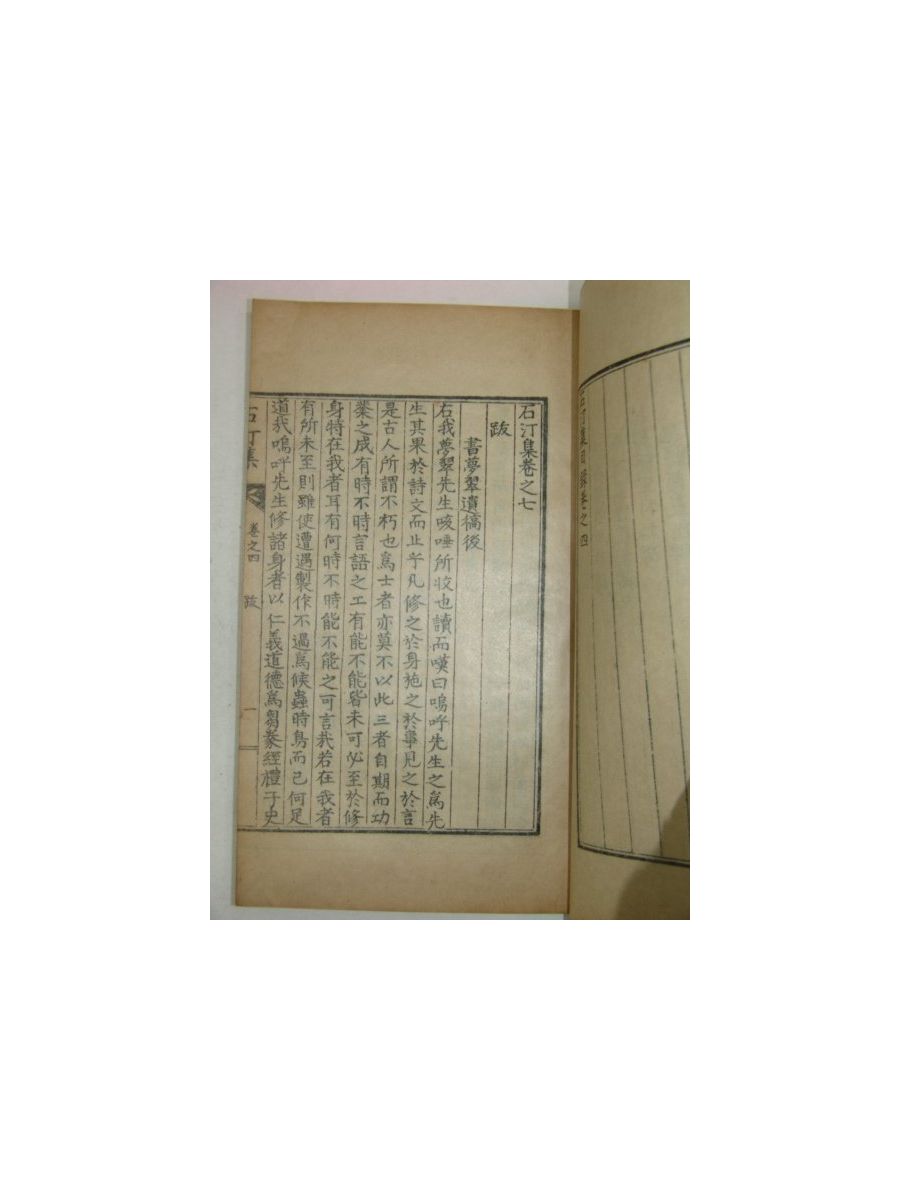 石汀集卷之四
石汀集卷之七
跋
書夢翠遺稿後
右我夢翠先生咳唾所收也讀而嘆曰嗚呼先生之爲先
生其果於詩文而止乎凡修之於身施之於事見之於言
是古人所謂不朽也爲士者亦莫不以此三者自期而功
業之成有時不時言語之工有能不能皆未可必至於修
身特在我者耳有何時不時能不能之可言我若在我者
有所未至則雖使遭遇製作不過爲候蟲時鳥而已何足
道我嗚呼先生修諸身者以仁義道德爲芻豢經禮子史
石汀集 卷之四 跋 一